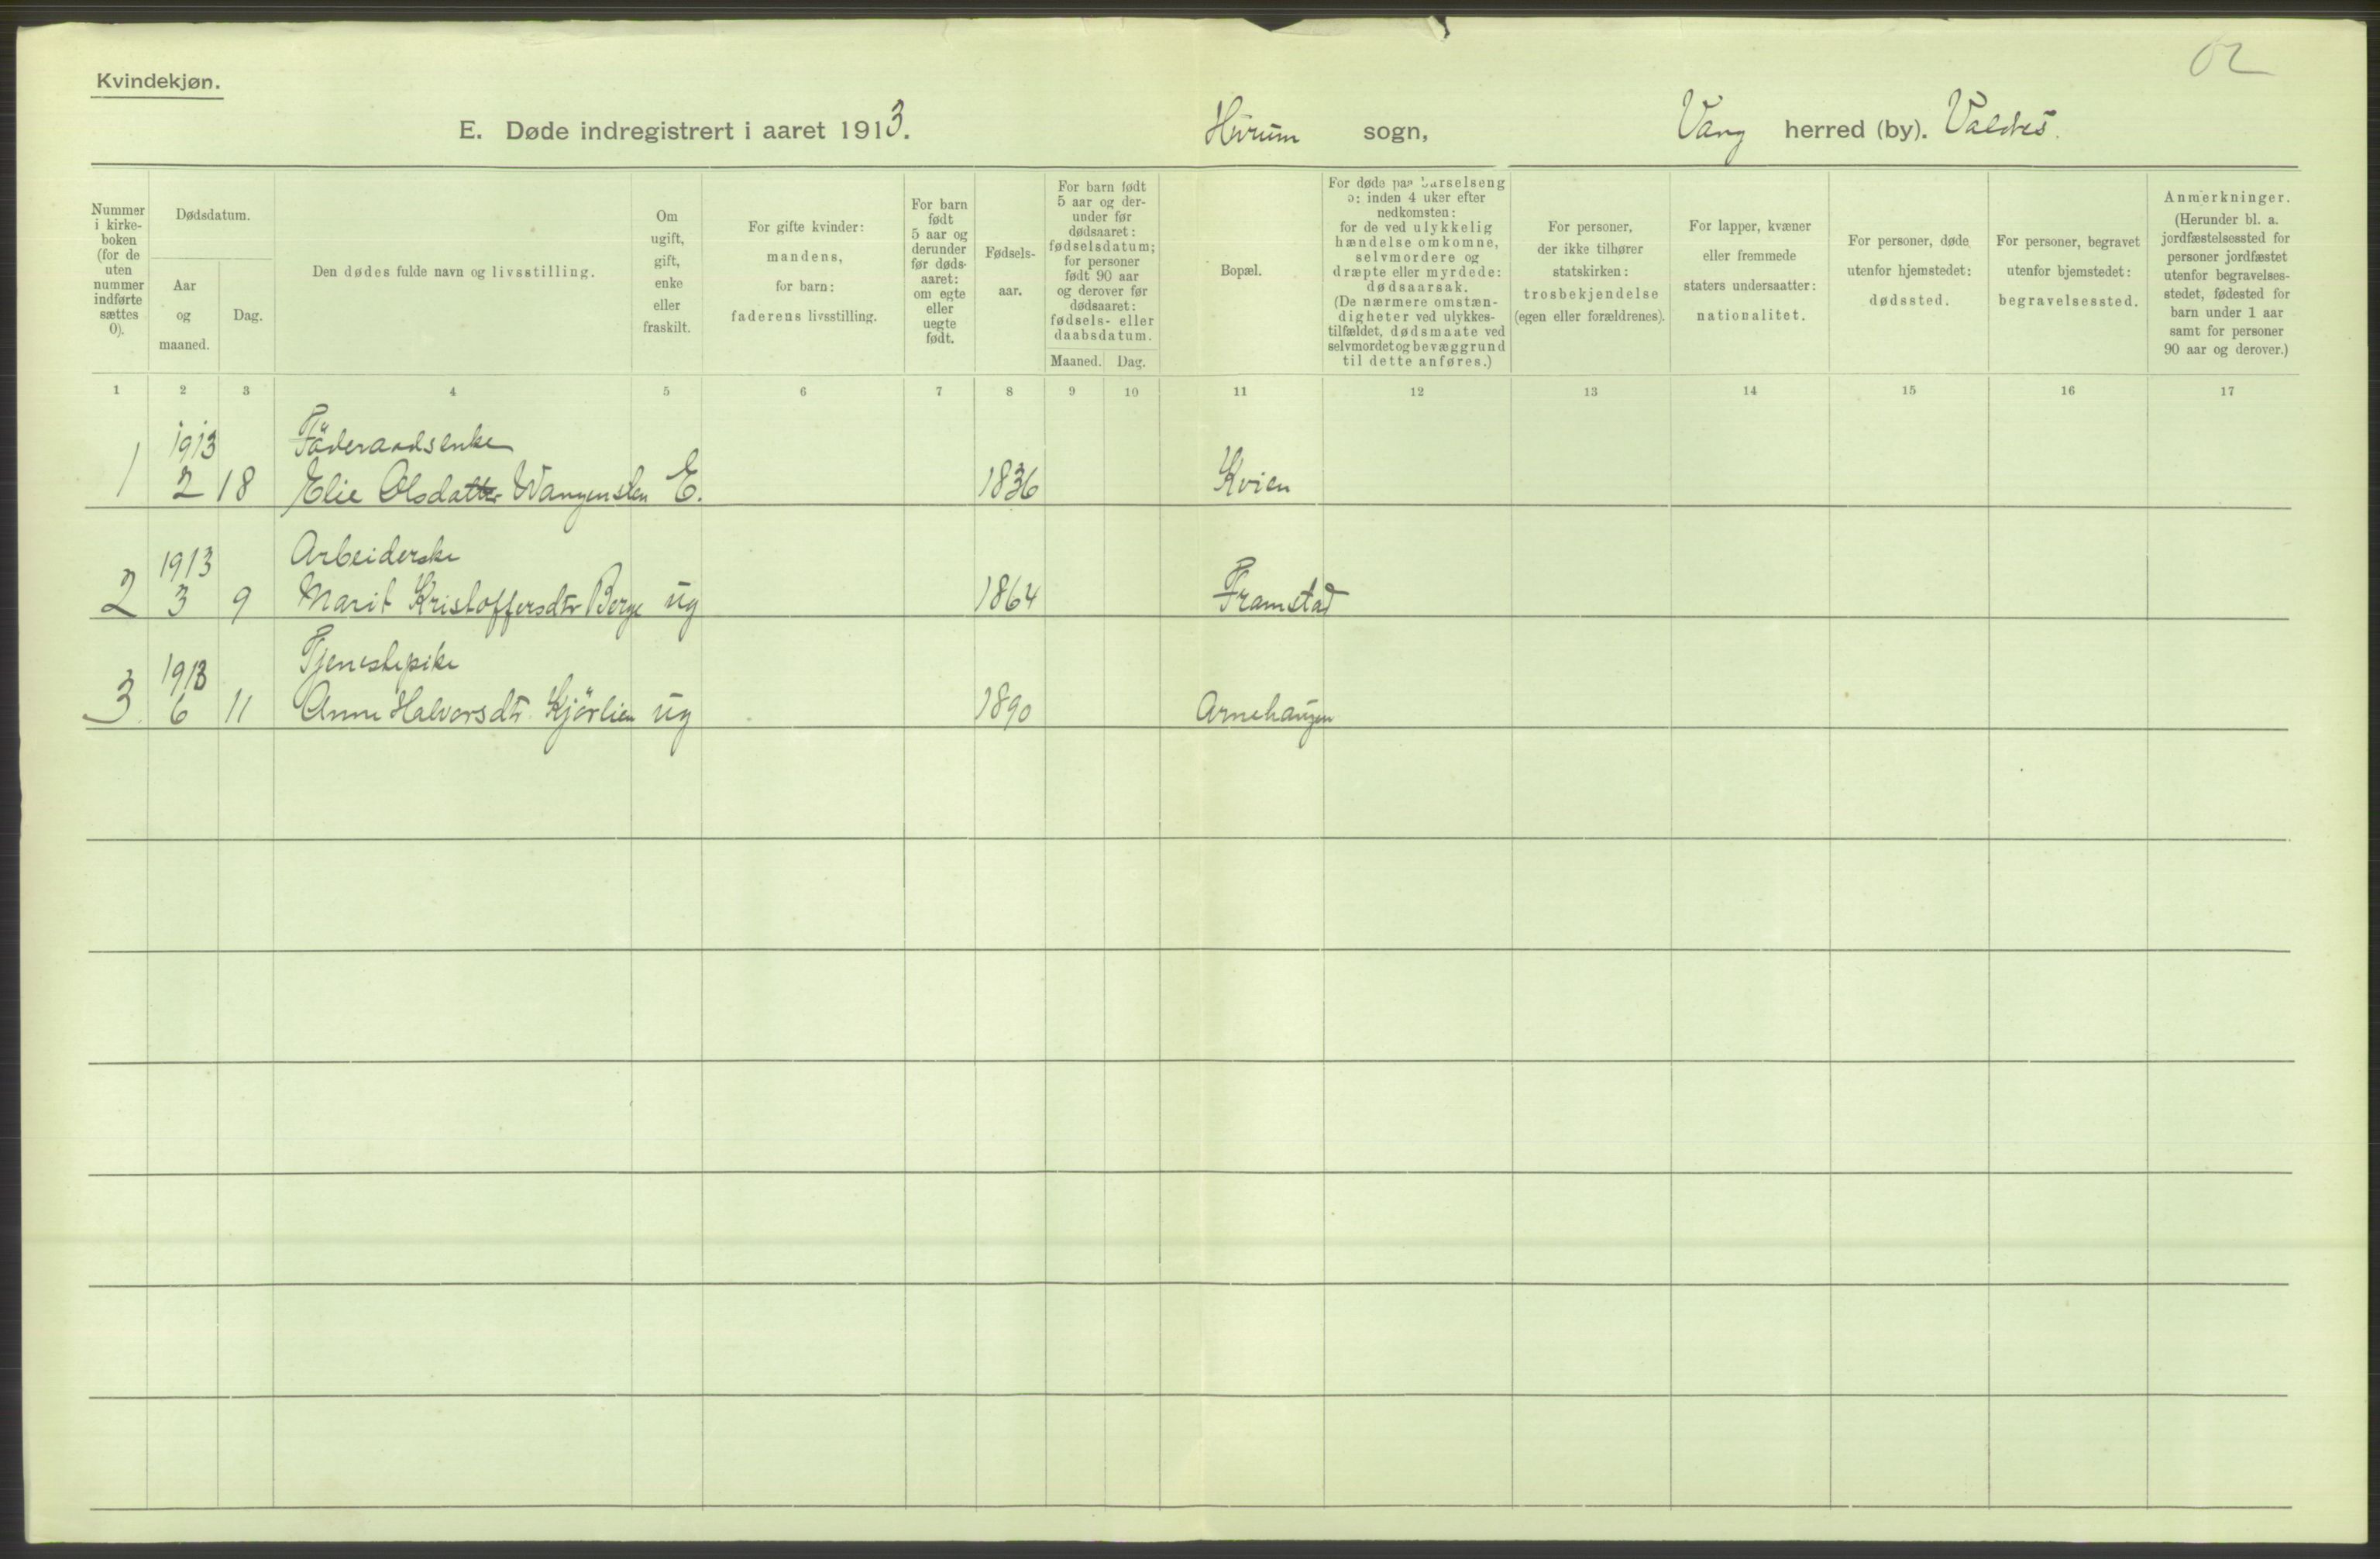 02
Kvindekjøn.
E. Døde indregistrert i aaret 1913. Hurum sogn, Vang herred (by). Valdres.
Nummer
i kirke-
boken
(for de
uten
nummer
indførte
sættes
0).
Dødsdatum.
Aar
og
maaned.
Dag.
Den dødes fulde navn og livsstilling.
Om
ugift,
gift,
enke
eller
fraskilt.
For gifte kvinder:
mandens,
for barn:
faderens livsstilling.
For barn
født
5 aar og
derunder
før døds-
aaret:
om egte
eller
uegte
født.
Fødsels-
aar.
For barn født
5 aar og der-
under før
dødsaaret:
fødselsdatum;
for personer
født 90 aar
og derover før
dødsaaret:
fødsels- eller
daabsdatum.
Maaned. Dag.
Bopæl.
For døde paa barselseng
ɔ: inden 4 uker efter
nedkomsten:
for de ved ulykkelig
hændelse omkomne,
selvmordere og
dræpte eller myrdede:
dødsaarsak.
(De nærmere omstæn-
digheter ved ulykkes-
tilfældet, dødsmaate ved
selvmordet og bevæggrund
til dette anføres.)
For personer,
der ikke tilhører
statskirken:
trosbekjendelse
(egen eller forældrenes).
For lapper, kvæner
eller fremmede
staters undersaatter:
nationalitet.
For personer, døde
utenfor hjemstedet:
dødssted.
For personer, begravet
utenfor bjemstedet:
begravelsessted.
Anmerkninger.
(Herunder bl. a.
jordfæstelsessted for
personer jordfæstet
utenfor begravelses-
stedet, fødested for
barn under 1 aar
samt for personer
90 aar og derover.)
1 2 3 4 5 6 7 8 9 10 11 12 13 14 15 16 17
1913 Föderaadsenke
1 2 18 Elie Olsdatter Wangensten E. 1836 Kvien
1913 Arbeiderske
2 3 9 Marit Kristoffersdtr Berge ug 1864 Framstad
1913 Tjenestepike
3. 6 11 Anne Halvorsdtr Kjörlien ug 1890 Arnehaugen